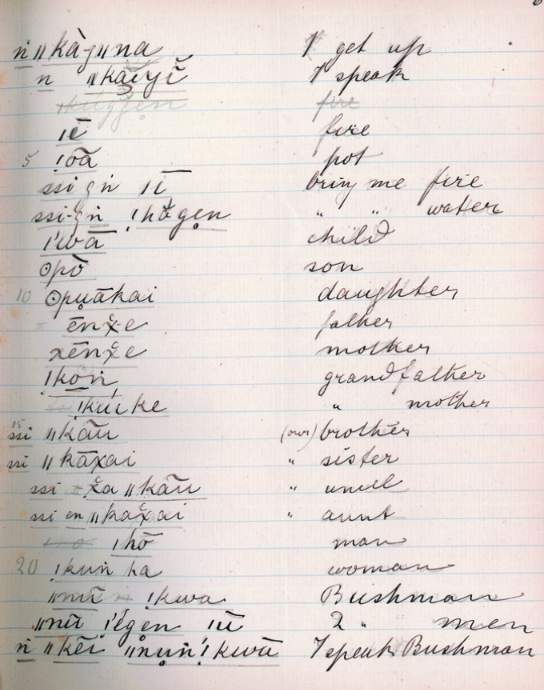 n̄ ǁkāȷ̣ǁna I get up
n ǁkāiyi I speak
fire
ǀē fire
5 ǃōā pot
ssi g n̄ ǀī bring me fire
ssi-g n̄ ǃhāgen " " water
ǀwā child
ʘpò son
10 ʘpuākai daughter
ēnẋe father
xēnẋe mother
ǃkoṅ grandfather
" mother
15 ssi ǁkāu (our) brother
ssi ǁkāxai " sister
ssi ẋa ǁkāu " uncle
ssi en ǁkaẋai " aunt
ǃhō man
20 ǃkuṅ ha woman
ǁnū ǃkwa Bushman
ǁnū ǃégen ǀū 2 " men
n̄ ǁkēi ǁnuṅ ǃkwā I speak Bushman